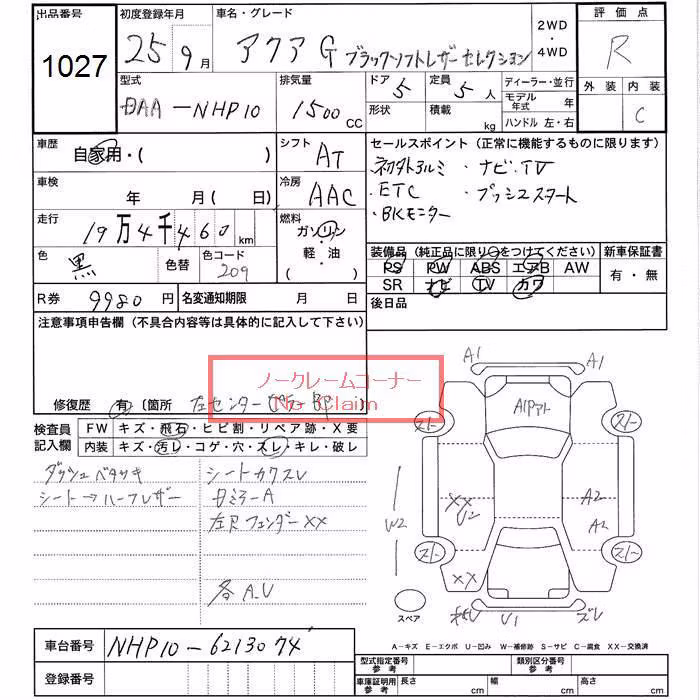 出品番号 初度登録年月 車名・グレード 2WD ・ 4WD 評価点
1027 25年9月 アクア G ブラックソフトレザーセレクション R
型式 排気量 ドア 5 定員 5人 ディーラー・並行 外装 内装
DAA-NHP10 1500 CC 形状 積載 kg モデル年式 年 C
ハンドル 左・右
車歴 自家用・( ) シフト AT セールスポイント(正常に機能するものに限ります)
・ナビ.TV
車検 年 月( 日) 冷房 AAC ・ETC ・プッシュスタート
・BKモニター
走行 19万4千460km 燃料 ガソリン・軽・油( )
装備品(純正品に限り○をつけてください) 新車保証書
色 黒 色替 色コード 209 PS PW ABS エアB AW 有・無
SR ナビ TV カワ
R券 9980円 名変通知期限 月 日 後日品
注意事項申告欄(不具合内容等は具体的に記入して下さい)
ノークレームコーナー
No Claim
修復歴 有〔箇所 左センター
検査員記入欄 FW キズ・飛石・ヒビ割・リペア跡・X要
内装 キズ・汚レ・コゲ・穴・スレ・キレ・破レ
ダッシュベタツキ シートカワスレ
シート→ハーフレザー 日ミラーA
左Rフェンダー XX
各A.U
A1 A1
A1Pアト
スト スト
XX U2 A2
W2 A2
スト スト
XX
スペア U1 ズレ
車台番号 NHP10-6213074
登録番号
A-キズ E-エクボ U-凹み W-補修跡 S-サビ C-腐食 XX-交換済
型式指定番号 参考 類別区分番号 参考
車庫証明用 参考 長さ cm 幅 cm 高さ cm